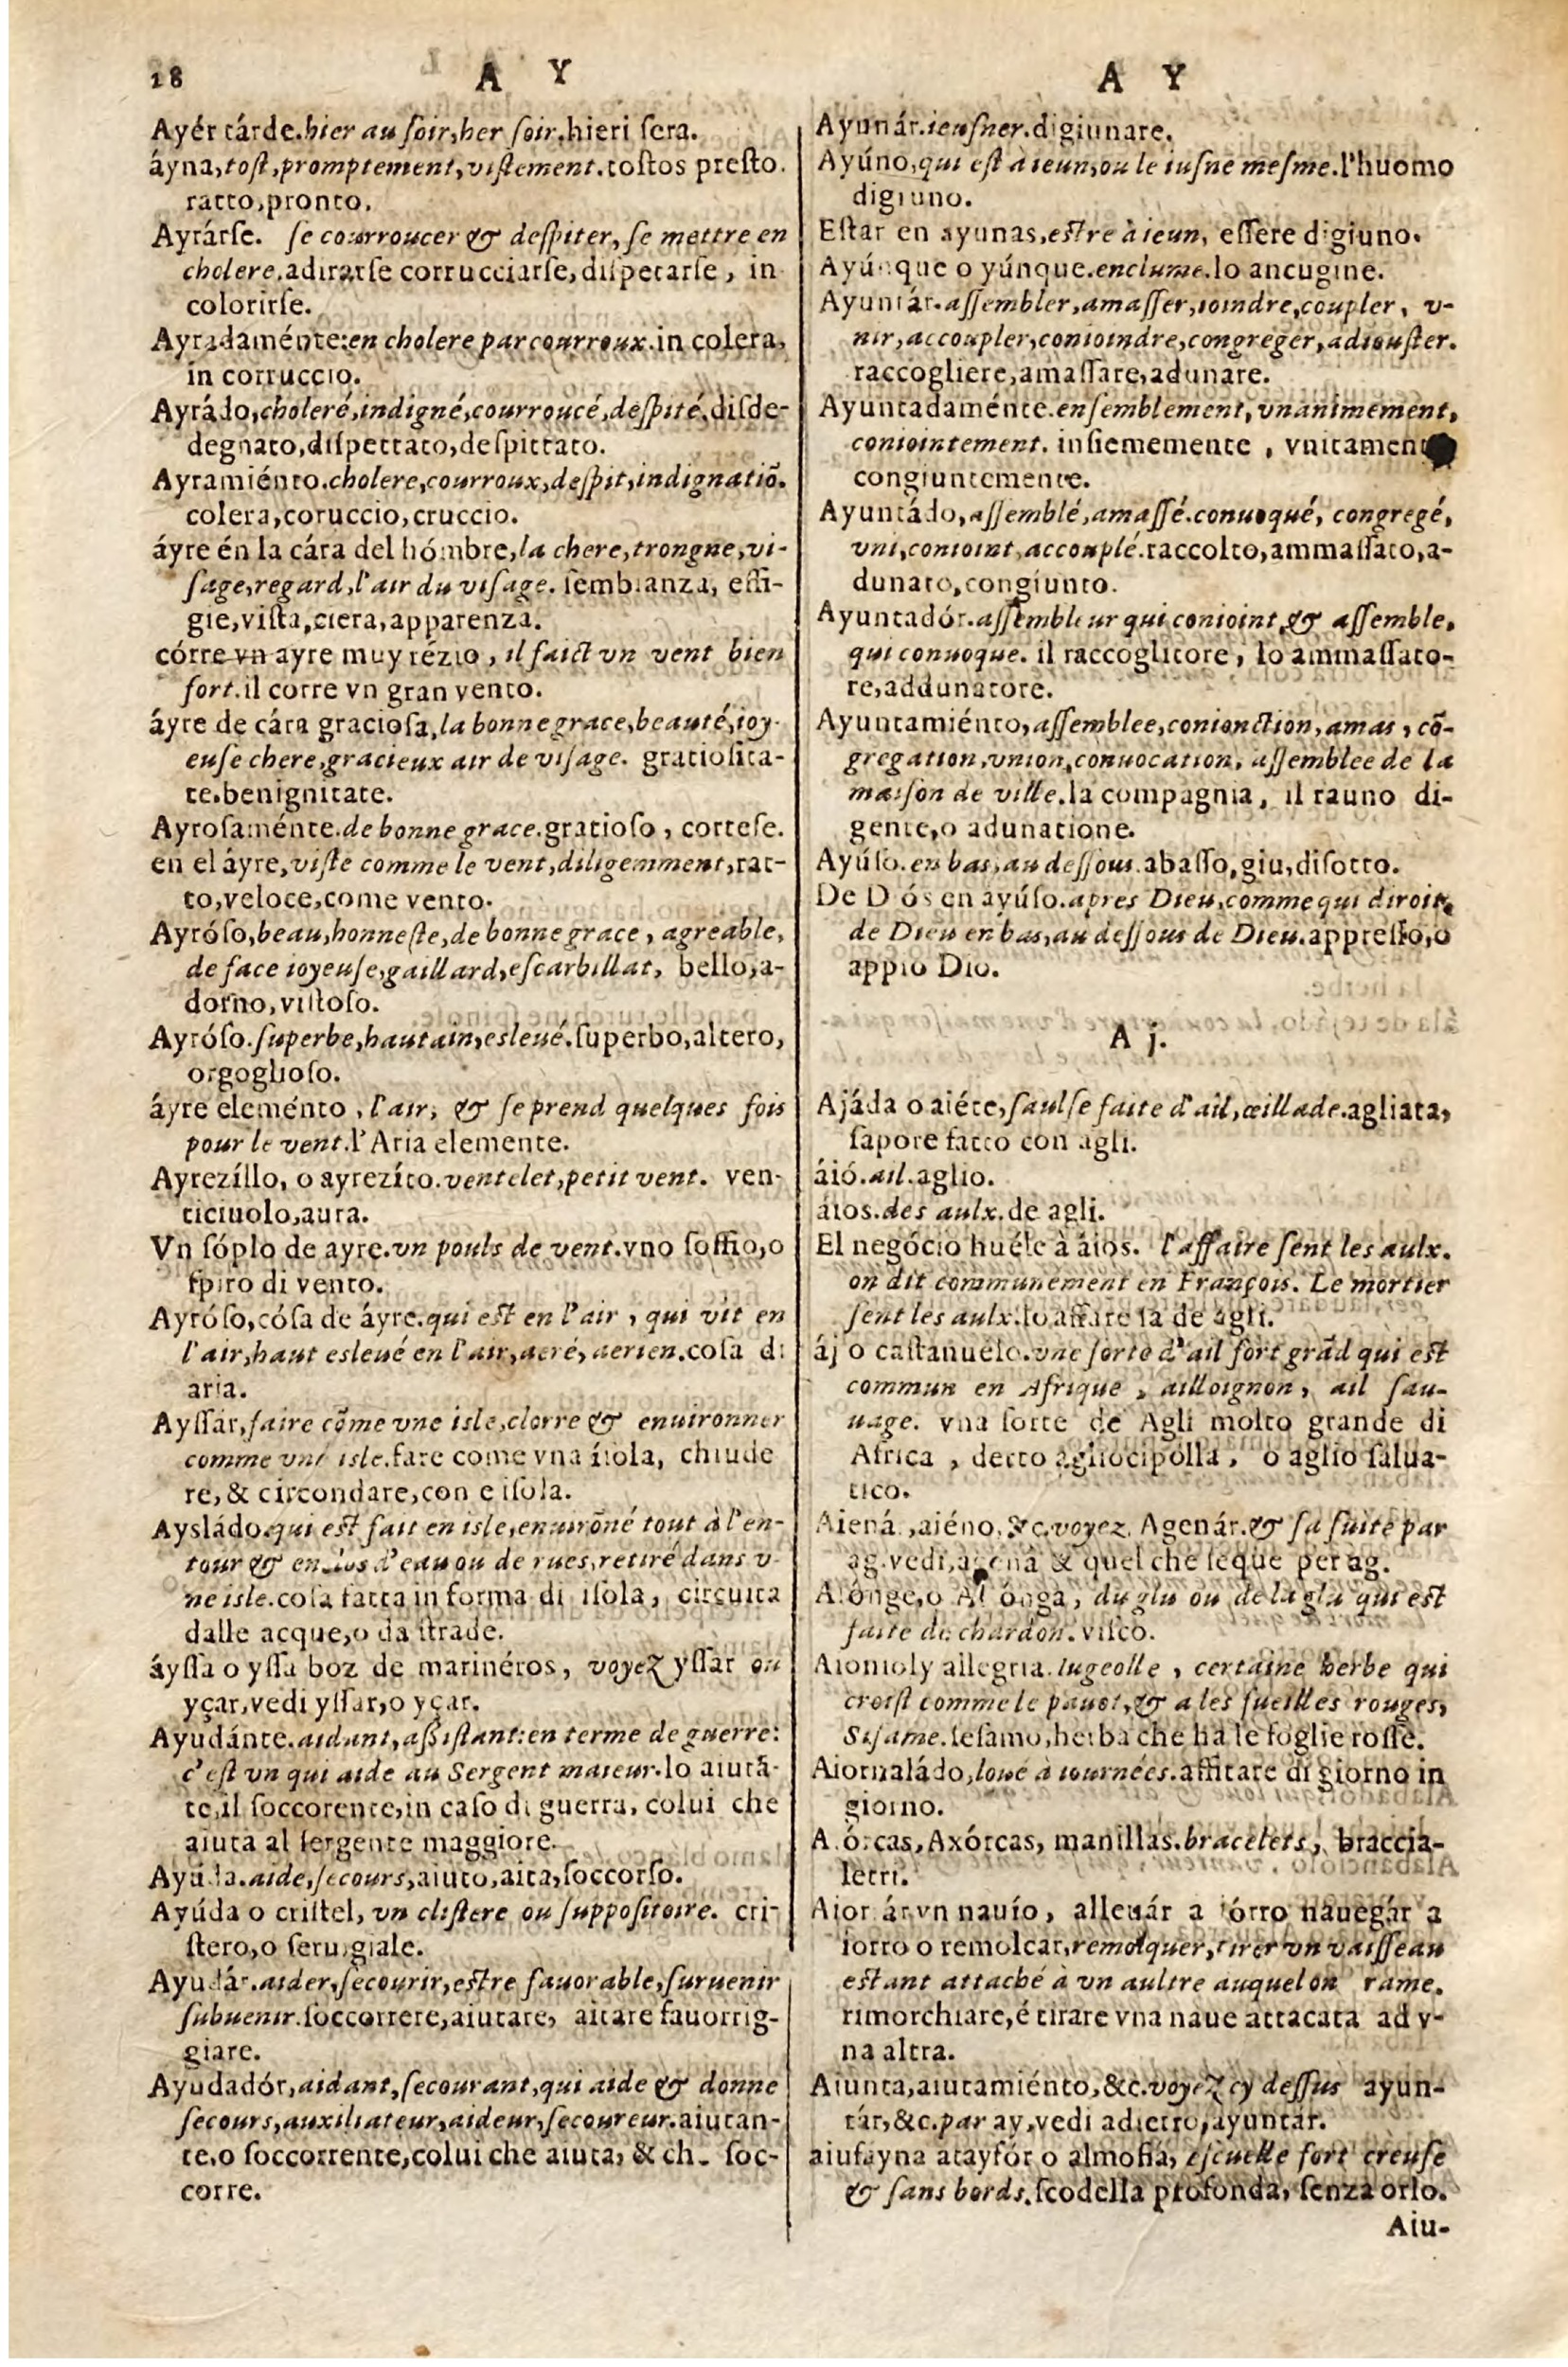 18
A Y
Ayér tárde.hier au ſoir,her ſoir.hieri ſera.
áyna,toſt,promptement,viſtement.toſtos preſto.
ratto,pronto.
Ayrárſe. ſe courroucer & deſpiter, ſe mettre en
cholere.adirarſe corrucciarſe,diſpetarſe, in
colorirſe.
Ayradaménte:en cholere par courroux.in colera,
in corruccio.
Ayrádo,choleré,indigné,courroucé,deſpité.diſde-
degnato,diſpettato,deſpittato.
Ayramiénto.cholere,courroux,deſpit,indignatiō.
colera,coruccio,cruccio.
áyre én la cára del hómbre,la chere,trongne,vi-
ſage,regard,l'air du viſage. ſembianza, effi-
gie,viſta,ciera,apparenza.
córre vn ayre muy rézio, il faict vn vent bien
fort.il corre vn gran vento.
áyre de cára gracioſa,la bonne grace,beauté,ioy-
euſe chere,gracieux air de viſage. gratioſita-
te.benignitate.
Ayroſaménte.de bonne grace.gratioſo, corteſe.
en el áyre,viſte comme le vent,diligemment,rat-
to,veloce,come vento.
Ayróſo,beau,honneſte,de bonne grace, agreable,
de face ioyeuſe,gaillard,eſcarbillat, bello,a-
dorno,viſtoſo.
Ayróſo.ſuperbe,hautain,esleué.ſuperbo,altero,
orgoglioſo.
áyre eleménto, l'air, & ſe prend quelques fois
pour le vent.l'Aria elemente.
Ayrezíllo, o ayrezíto.ventelet,petit vent. ven-
ticiuolo,aura.
Vn ſóplo de ayre.vn pouls de vent.vno ſoffio,o
ſpiro di vento.
Ayróſo,cóſa de áyre.qui est en l'air, qui vit en
l'air,haut esleué en l'air,aeré,aerien.coſa di
aria.
Ayſſár,faire cōme vne isle,clorre & enuironner
comme vne isle.fare come vna iſola, chiude
re,& circondare,con e iſola.
Aysládo.qui est fait en isle,enuirōné tout à l'en-
tour & enclos d'eau ou de rues,retiré dans v-
ne isle.coſa fatta in forma di iſola, circuita
dalle acque,o da ſtrade.
áyſſa o yſſa boz de marinéros, voyez yſſar ou
yçar,vedi yſſar,o yçar.
Ayudánte.aidant,aſſiſtant:en terme de guerre:
c'eſt vn qui aide au Sergent maieur.lo aiutā-
te,il ſoccorente,in caſo di guerra, colui che
aiuta al ſergente maggiore.
Ayúda.aide,ſecours,aiuto,aita,ſoccorſo.
Ayúda o criſtel, vn cliſtere ou ſuppoſitoire. cri-
ſtero,o ſeruigiale.
Ayudár.aider,ſecourir,eſtre fauorable,ſuruenir
ſubuenir.ſoccorrere,aiutare, aitare fauorrig-
giare.
Ayudadór,aidant,ſecourant,qui aide & donne
ſecours,auxiliateur,aideur,ſecoureur.aiutan-
te,o ſoccorrente,colui che aiuta, & ch. ſoc-
corre.
A Y
Ayunár.ieuſner.digiunare.
Ayúno,qui eſt à ieun,ou le iuſne meſme.l'huomo
digiuno.
Eſtar en ayunas,eſtre à ieun, eſſere digiuno.
Ayúnque o yúnque.enclume.lo ancugine.
Ayuntár.aſſembler,amaſſer,ioindre,coupler, v-
nir,accoupler,conioindre,congreger,adiouſter.
raccogliere,amaſſare,adunare.
Ayuntadaménte.enſemblement,vnanimement,
conioíntement. inſiememente, vnitament
congiuntemente.
Ayuntádo,aſſemblé,amaſſé.conuoqué, congregé,
vni,conioint,accouplé.raccolto,ammaſſato,a-
dunato,congiunto.
Ayuntadór.aſſembleur qui conioint & aſſemble,
qui conuoque. il raccoglitore, lo ammaſſato-
re,addunatore.
Ayuntamiénto,aſſemblee,conionction,amas, cō-
gregation,vnion,conuocation, aſſemblee de la
maiſon de ville.la compagnia, il rauno di-
gente,o adunatione.
Ayúſo.en bas,au deſſous.abaſſo,giu,diſotto.
De Diós en ayúſo.apres Dieu,comme qui diroit,
de Dieu en bas,au deſſous de Dieu.appreſſo,o
appio Dio.
A j.
Ajáda o aiéte,ſaulſe faite d'ail,œillade.agliata,
ſapore fatto con agli.
áió.ail.aglio.
áios.des aulx.de agli.
El negócio huéle à áios. l'affaire ſent les aulx.
on dit communement en François. Le mortier
ſent les aulx.lo affare ſa de agli.
áj o caſtañuélo.vne ſorte d'ail fort grād qui est
commun en Afrique, ailloignon, ail ſau-
uage. vna ſorte de Agli molto grande di
Africa, detto agliocipólla, o aglio ſalua-
tico.
Aiená ,aiéno,&c.voyez Agenár.& ſa ſuite par
ag.vedi, & quel che ſeque per ag.
Aiónge,o Aiónga, du glu ou de la glu qui est
faite de chardon.viſco.
Aionioly allegria.Iugeolle, certaine herbe qui
croiſt comme le pauot,& a les fueilles rouges,
Siſame.ſeſamo,herba che ha le foglie roſſe.
Aiornaládo,loué à iournées.affitare di giorno in
giorno.
A órcas,Axórcas, manillas.bracelets, braccia-
letti.
Aior ár vn nauío, alleuár a iórro nauegár a
iorro o remolcar,remolquer,tirer vn vaiſſeau
eſtant attaché à vn aultre auquel on rame.
rimorchiare,é tirare vna naue attacata ad v-
na altra.
Aiunta,aiutamiénto,&c.voyez cy deſſus ayun-
tár,&c.par ay,vedi adietro,ayuntár.
aiufayna atayfór o almofia, eſcuelle fort creuſe
& ſans bords.ſcodella profonda, ſenza orlo.
Aiu-